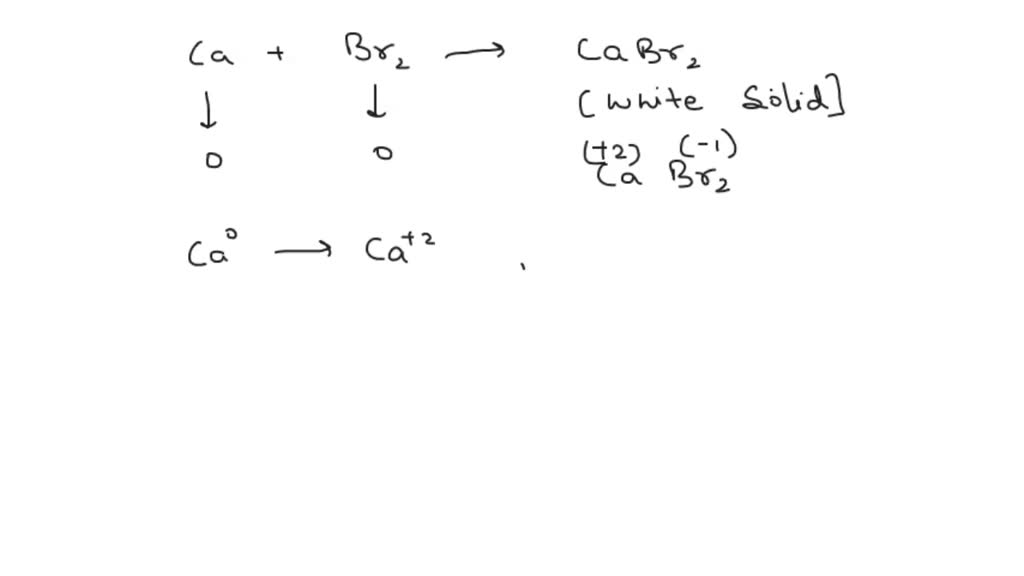 Ca + Br₂ ⟶ CaBr₂
↓ ↓ [White Solid]
0 0 (+2) (-1)
Ca Br₂
Ca⁰ ⟶ Ca⁺² ,